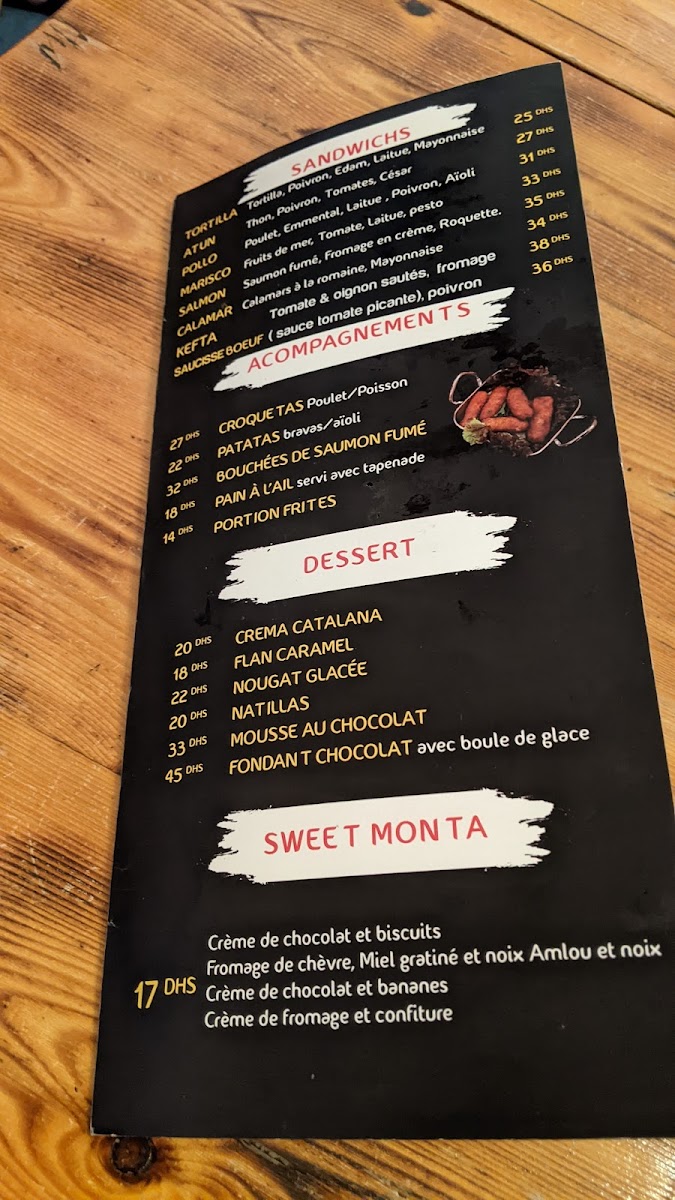 SANDWICHS
TORTILLA Tortilla, Poivron, Edam, Laitue, Mayonnaise 25 DHS
ATUN Thon, Poivron, Tomates, César 27 DHS
POLLO Poulet, Emmental, Laitue , Poivron, Aïoli 31 DHS
MARISCO Fruits de mer, Tomate, Laitue, pesto 33 DHS
SALMON Saumon fumé, Fromage en crème, Roquette. 35 DHS
CALAMAR Calamars à la romaine, Mayonnaise 34 DHS
KEFTA Tomate & oignon sautés, fromage 38 DHS
SAUCISSE BOEUF ( sauce tomate picante), poivron 36 DHS
ACOMPAGNEMENTS
27 DHS CROQUETAS Poulet/Poisson
22 DHS PATATAS bravas/aïoli
32 DHS BOUCHÉES DE SAUMON FUMÉ
18 DHS PAIN À L'AIL servi avec tapenade
14 DHS PORTION FRITES
DESSERT
20 DHS CREMA CATALANA
18 DHS FLAN CARAMEL
22 DHS NOUGAT GLACÉE
20 DHS NATILLAS
33 DHS MOUSSE AU CHOCOLAT
45 DHS FONDANT CHOCOLAT avec boule de glace
SWEET MONTA
Crème de chocolat et biscuits
Fromage de chèvre, Miel gratiné et noix Amlou et noix
17 DHS Crème de chocolat et bananes
Crème de fromage et confiture